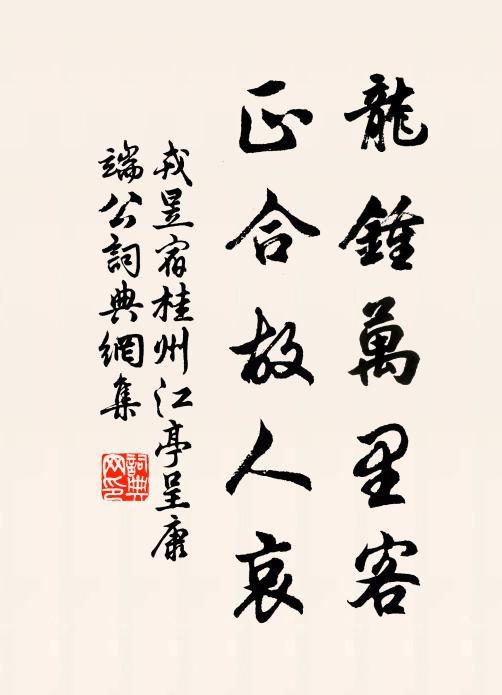 龍鍾萬里客
正合故人哀
戎昱宿桂州江亭呈康
端公詞典網集
詞典
网印